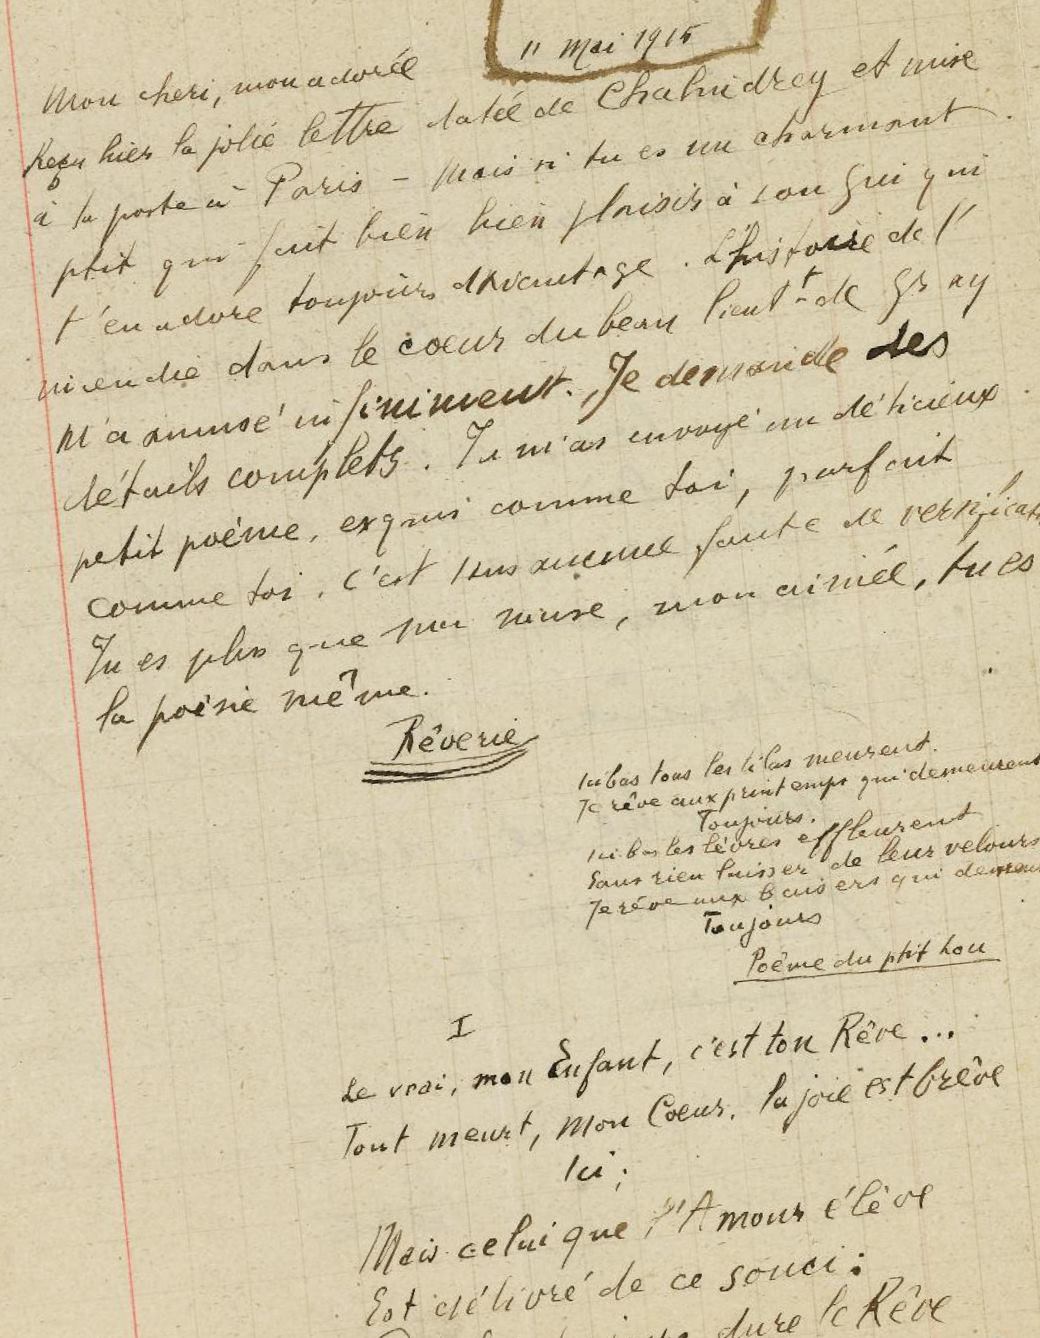 11 Mai 1915
Mon cheri, mon adorée
Reçu hier la jolie lettre datée de Chalindrey et mise
à la poste à Paris — Mais si tu es un charmant
ptit qui fait bien bien plaisir à son Gui qui
t'en adore toujours davantage. L'histoire de l'
incendie dans le coeur du beau lieutt de Gray
m'a amusé infiniment. Je demande des
détails complets. Tu m'as envoyé un délicieux
petit poème, exquis comme toi, parfait
comme toi. C'est sans aucune faute de versificat
Tu es plus que ma muse, mon aimée, tu es
la poésie même.
Rêverie
Ici bas tous les lilas meurent.
Je rêve aux printemps qui demeurent
Toujours.
Ici bas les lèvres effleurent
Sans rien laisser de leur velours
Je rêve aux baisers qui demeurent
Toujours
Poème du ptit Lou
I
Le vrai, mon Enfant, c'est ton Rêve...
Tout meurt, mon Coeur, la joie est brève
Ici;
Mais celui que l'Amour élève
Est délivré de ce souci:
dure le Rêve